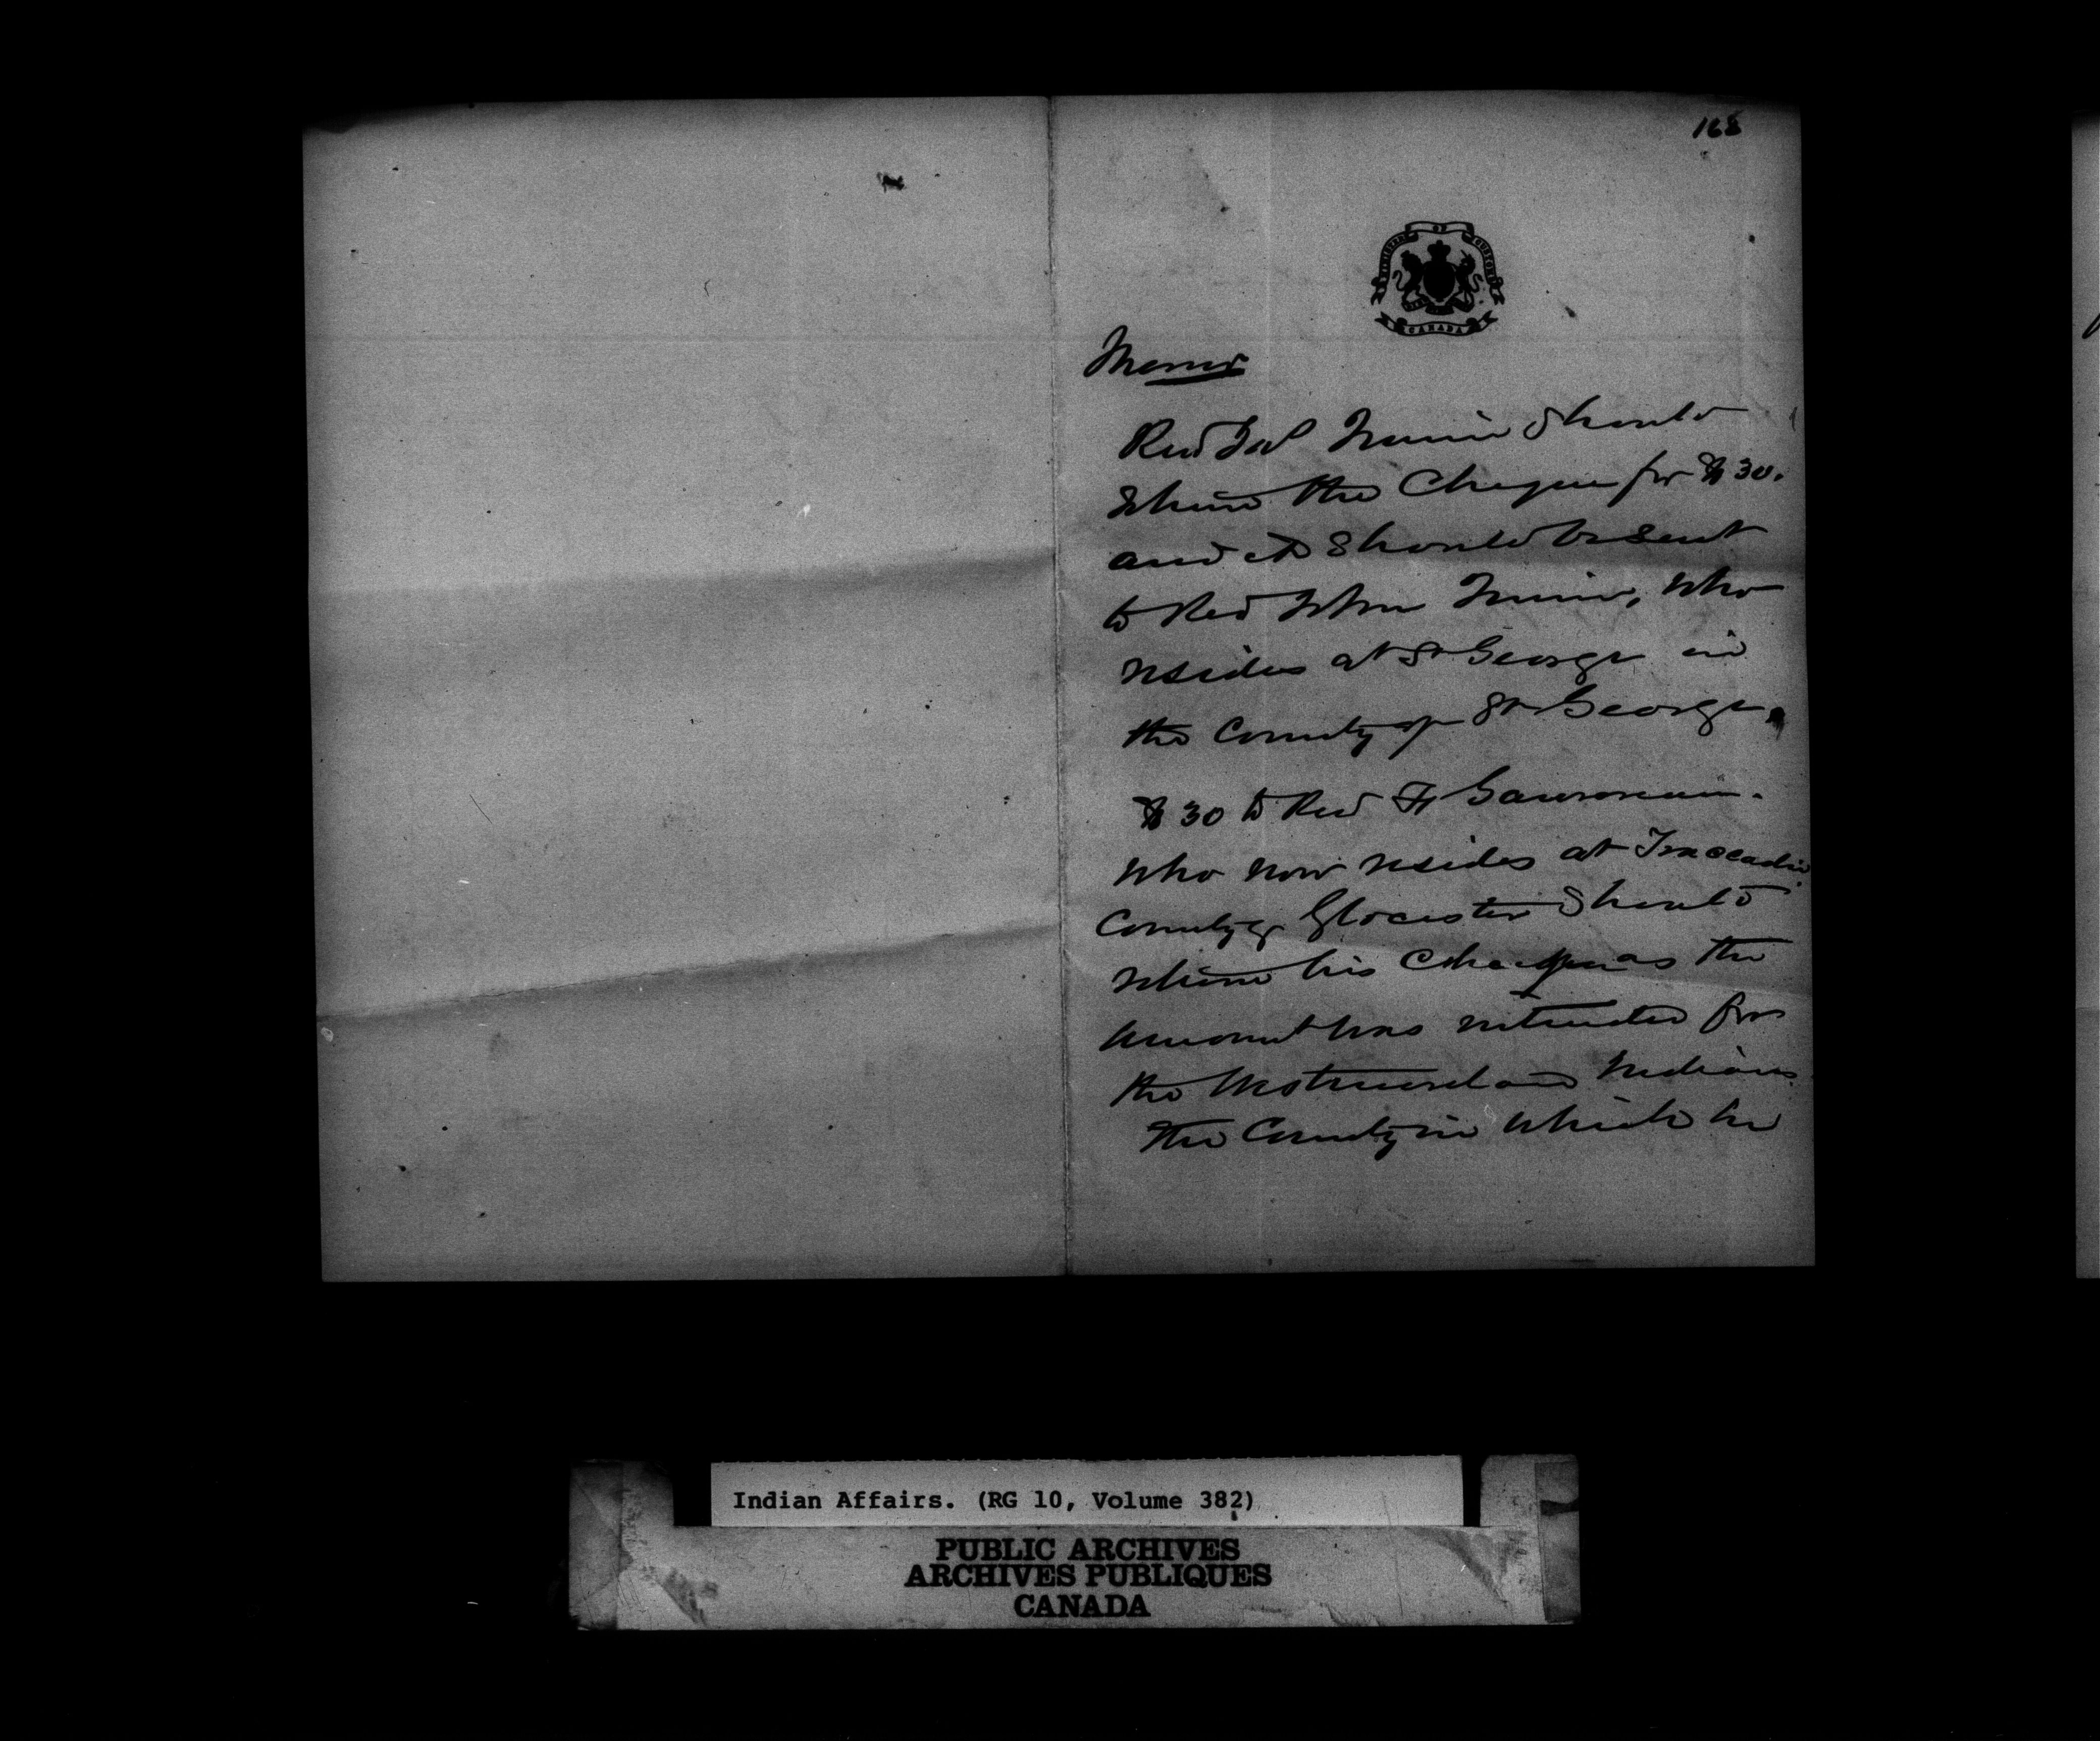 168
MINISTER OF CUSTOMS
CANADA
Memo
Revd Jas Quinn should
return the Cheque for $30.
and it should be sent
to Rev John Quinn, who
resides at St George in
the County of St George.
$30 to Rev Fr
who now resides at Traccadie
County of Glocester Should
return his Cheque as the
amount was intended for
the Westmoreland Indians
the County in which he
Indian Affairs. (RG 10, Volume 382)
PUBLIC ARCHIVES
ARCHIVES PUBLIQUES
CANADA